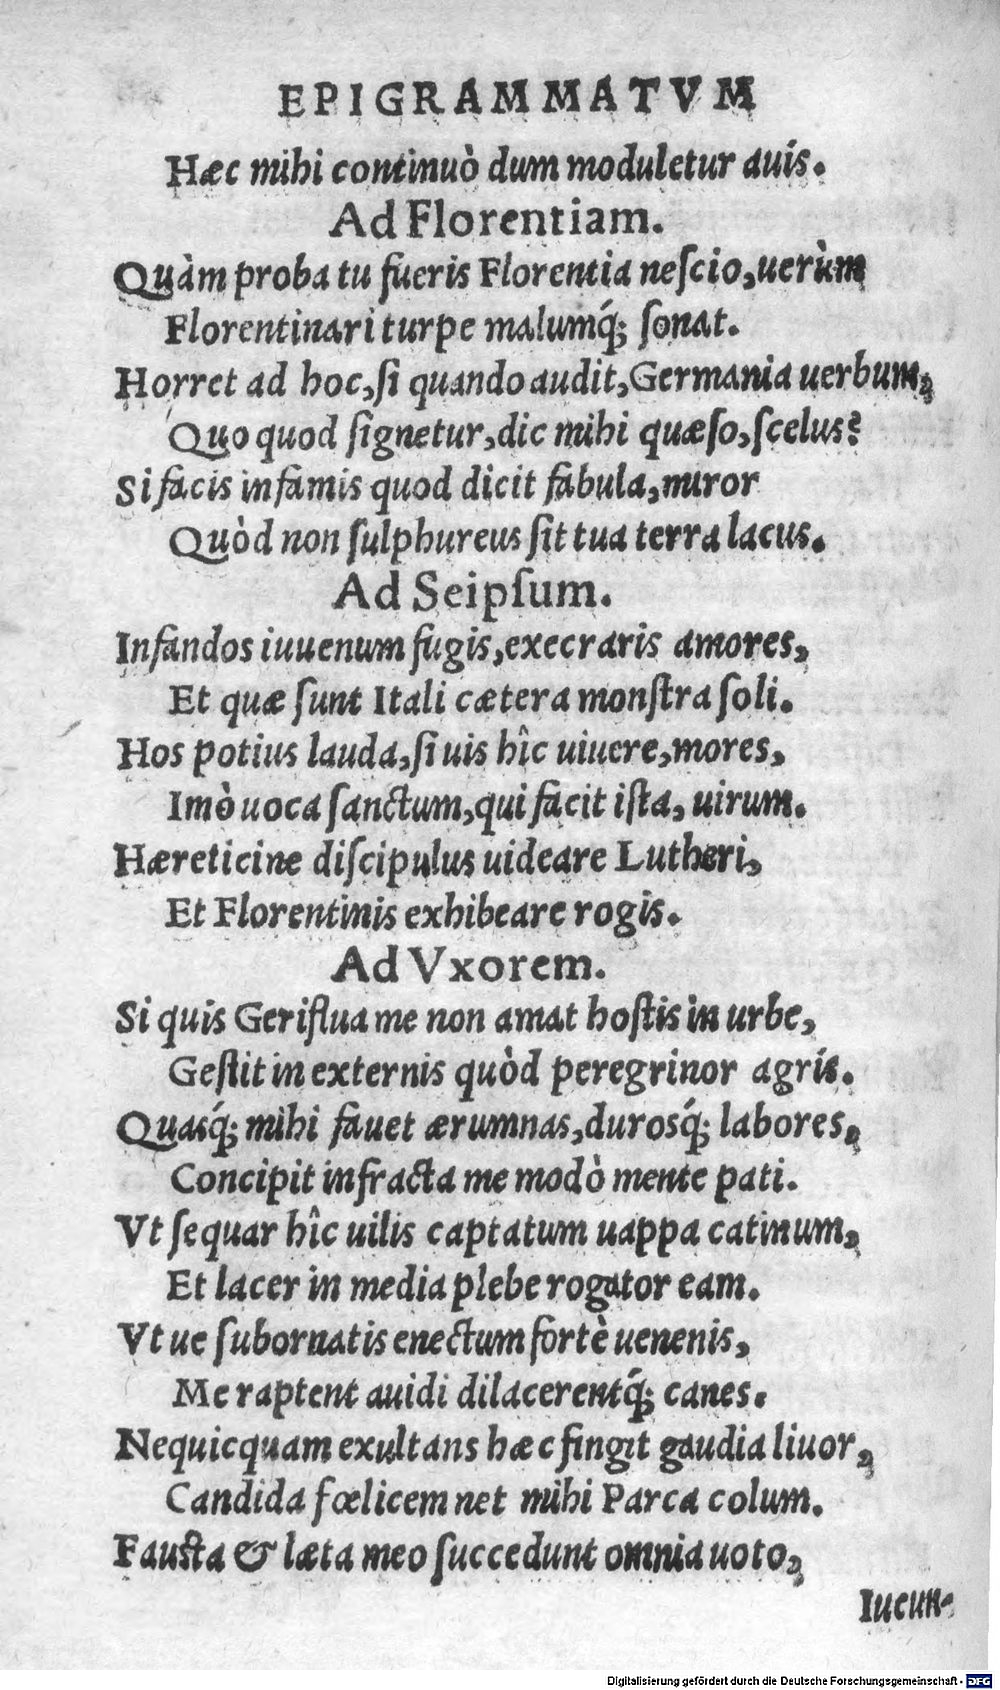 EPIGRAMMATVM
Hæc mihi continuò dum moduletur auis.
Ad Florentiam.
Quàm proba tu fueris Florentia neſcio, uerùm
Florentinari turpe malumq́; ſonat.
Horret ad hoc, ſi quando audit, Germania uerbum,
Quo quod ſignetur, dic mihi quæſo, ſcelus?
Si facis infamis quod dicit fabula, miror
Quòd non ſulphureus ſit tua terra lacus.
Ad Seipſum.
Infandos iuuenum fugis, execraris amores,
Et quæ ſunt Itali cætera monſtra ſoli.
Hos potius lauda, ſi uis hîc uiuere, mores,
Imò uoca ſanctum, qui facit iſta, uirum.
Hæreticine diſcipulus uideare Lutheri,
Et Florentinis exhibeare rogis.
Ad Vxorem.
Si quis Geriflua me non amat hoſtis in urbe,
Geſtit in externis quòd peregrinor agris.
Quasq́; mihi fauet ærumnas, durosq́; labores,
Concipit infracta me modò mente pati.
Vt ſequar hîc uilis captatum uappa catinum,
Et lacer in media plebe rogator eam.
Vt ue ſubornatis enectum fortè uenenis,
Me raptent auidi dilacerentq́; canes.
Nequicquam exultans hæc fingit gaudia liuor,
Candida fœlicem net mihi Parca colum.
Fauſta & læta meo ſuccedunt omnia uoto,
Iucun-
Digitalisierung gefördert durch die Deutsche Forschungsgemeinschaft - DFG